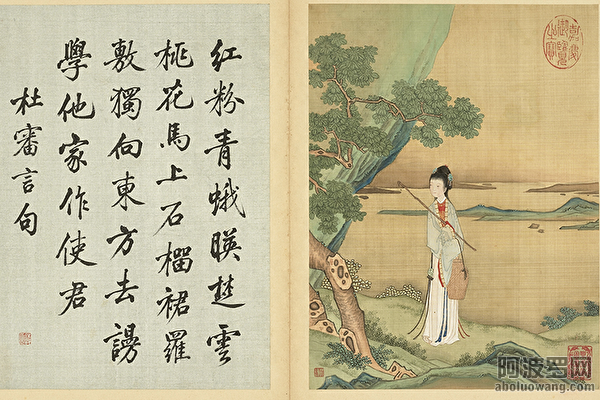 紅粉青蛾暎楚雲
桃花馬上石榴裙羅
敷獨向東方去謾
學他家作使君
杜審言句
乾隆御覽之寶
阿波罗网
aboluowang.com